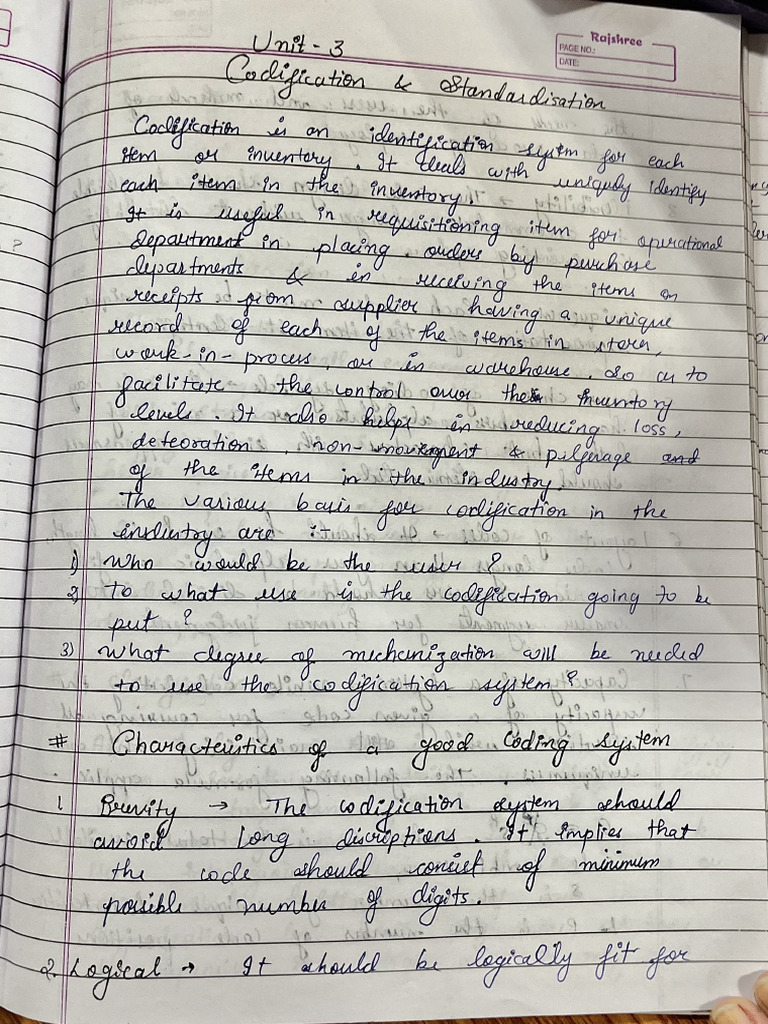 Rajshree
PAGE NO.:
DATE:
Unit - 3
Codification & Standardisation
Codification is an identification system for each
item or inventory. It deals with uniquely identify
each item in the inventory.
It is useful in requisitioning item for operational
department in placing orders by purchase
departments & in receiving the items on
receipts from supplier having a unique
record of each of the items in store,
work-in-process, or in warehouse. So as to
facilitate the control over the inventory
levels. It also helps in reducing loss,
deteoration, non-movement & pilferage and
of the items in the industry.
The various basis for codification in the
industry are :
1) Who would be the user ?
2) To what use is the codification going to be
put ?
3) What degree of mechanization will be needed
to use the codification system ?
# Characteristics of a good coding system
1 Brevity → The codification system should
avoid long discriptions. It implies that
the code should consist of minimum
possible number of digits.
2. Logical → It should be logically fit for